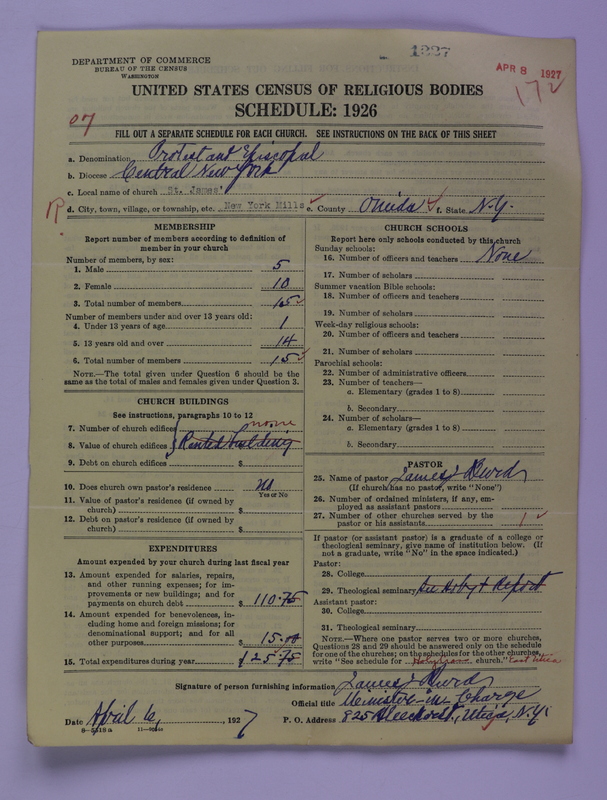 1927
DEPARTMENT OF COMMERCE
BUREAU OF THE CENSUS
WASHINGTON
APR 8 1927
172
UNITED STATES CENSUS OF RELIGIOUS BODIES
SCHEDULE: 1926
07
FILL OUT A SEPARATE SCHEDULE FOR EACH CHURCH. SEE INSTRUCTIONS ON THE BACK OF THIS SHEET
a. Denomination Protestand Episcopal
b. Diocese Central New York
c. Local name of church St. James'
d. City, town, village, or township, etc. New York Mills e. County Oneida f. State N.Y.
MEMBERSHIP
Report number of members according to definition of
member in your church
Number of members, by sex:
1. Male 5
2. Female 10
3. Total number of members 15
Number of members under and over 13 years old:
4. Under 13 years of age 1
5. 13 years old and over 14
6. Total number of members 15
NOTE.—The total given under Question 6 should be
same as the total of males and females given under Question 3.
CHURCH BUILDINGS
See instructions, paragraphs 10 to 12
7. Number of church edifices none
8. Value of church edifices Rented building
9. Debt on church edifices $
10. Does church own pastor's residence No
Yes or No
11. Value of pastor's residence (if owned by
church) $
12. Debt on pastor's residence (if owned by
church) $
EXPENDITURES
Amount expended by your church during last fiscal year
13. Amount expended for salaries, repairs,
and other running expenses; for im-
provements or new buildings; and for
payments on church debt $ 110.75
14. Amount expended for benevolences, in-
cluding home and foreign missions; for
denominational support; and for all
other purposes $ 15.00
15. Total expenditures during year $ 125.75
CHURCH SCHOOLS
Report here only schools conducted by this church
Sunday schools:
16. Number of officers and teachers None
17. Number of scholars
Summer vacation Bible schools:
18. Number of officers and teachers
19. Number of scholars
Week-day religious schools:
20. Number of officers and teachers
21. Number of scholars
Parochial schools:
22. Number of administrative officers
23. Number of teachers—
a. Elementary (grades 1 to 8)
b. Secondary
24. Number of scholars—
a. Elementary (grades 1 to 8)
b. Secondary
PASTOR
25. Name of pastor James J
(If church has no pastor, write "None")
26. Number of ordained ministers, if any, em-
ployed as assistant pastors
27. Number of other churches served by the
pastor or his assistants 1
If pastor (or assistant pastor) is a graduate of a college or
theological seminary, give name of institution below. (If
not a graduate, write "No" in the space indicated.)
Pastor:
28. College
29. Theological seminary Report
Assistant pastor:
30. College
31. Theological seminary
NOTE.—Where one pastor serves two or more churches,
Questions 28 and 29 should be answered only on the schedule
for one of the churches; on the schedules for the other churches,
write "See schedule for Holy Cross church." East Utica
Signature of person furnishing information James J
Official title Minister-in Charge
Date April 6, 1927 P. O. Address 825 Bleecker st., Utica, N.Y.